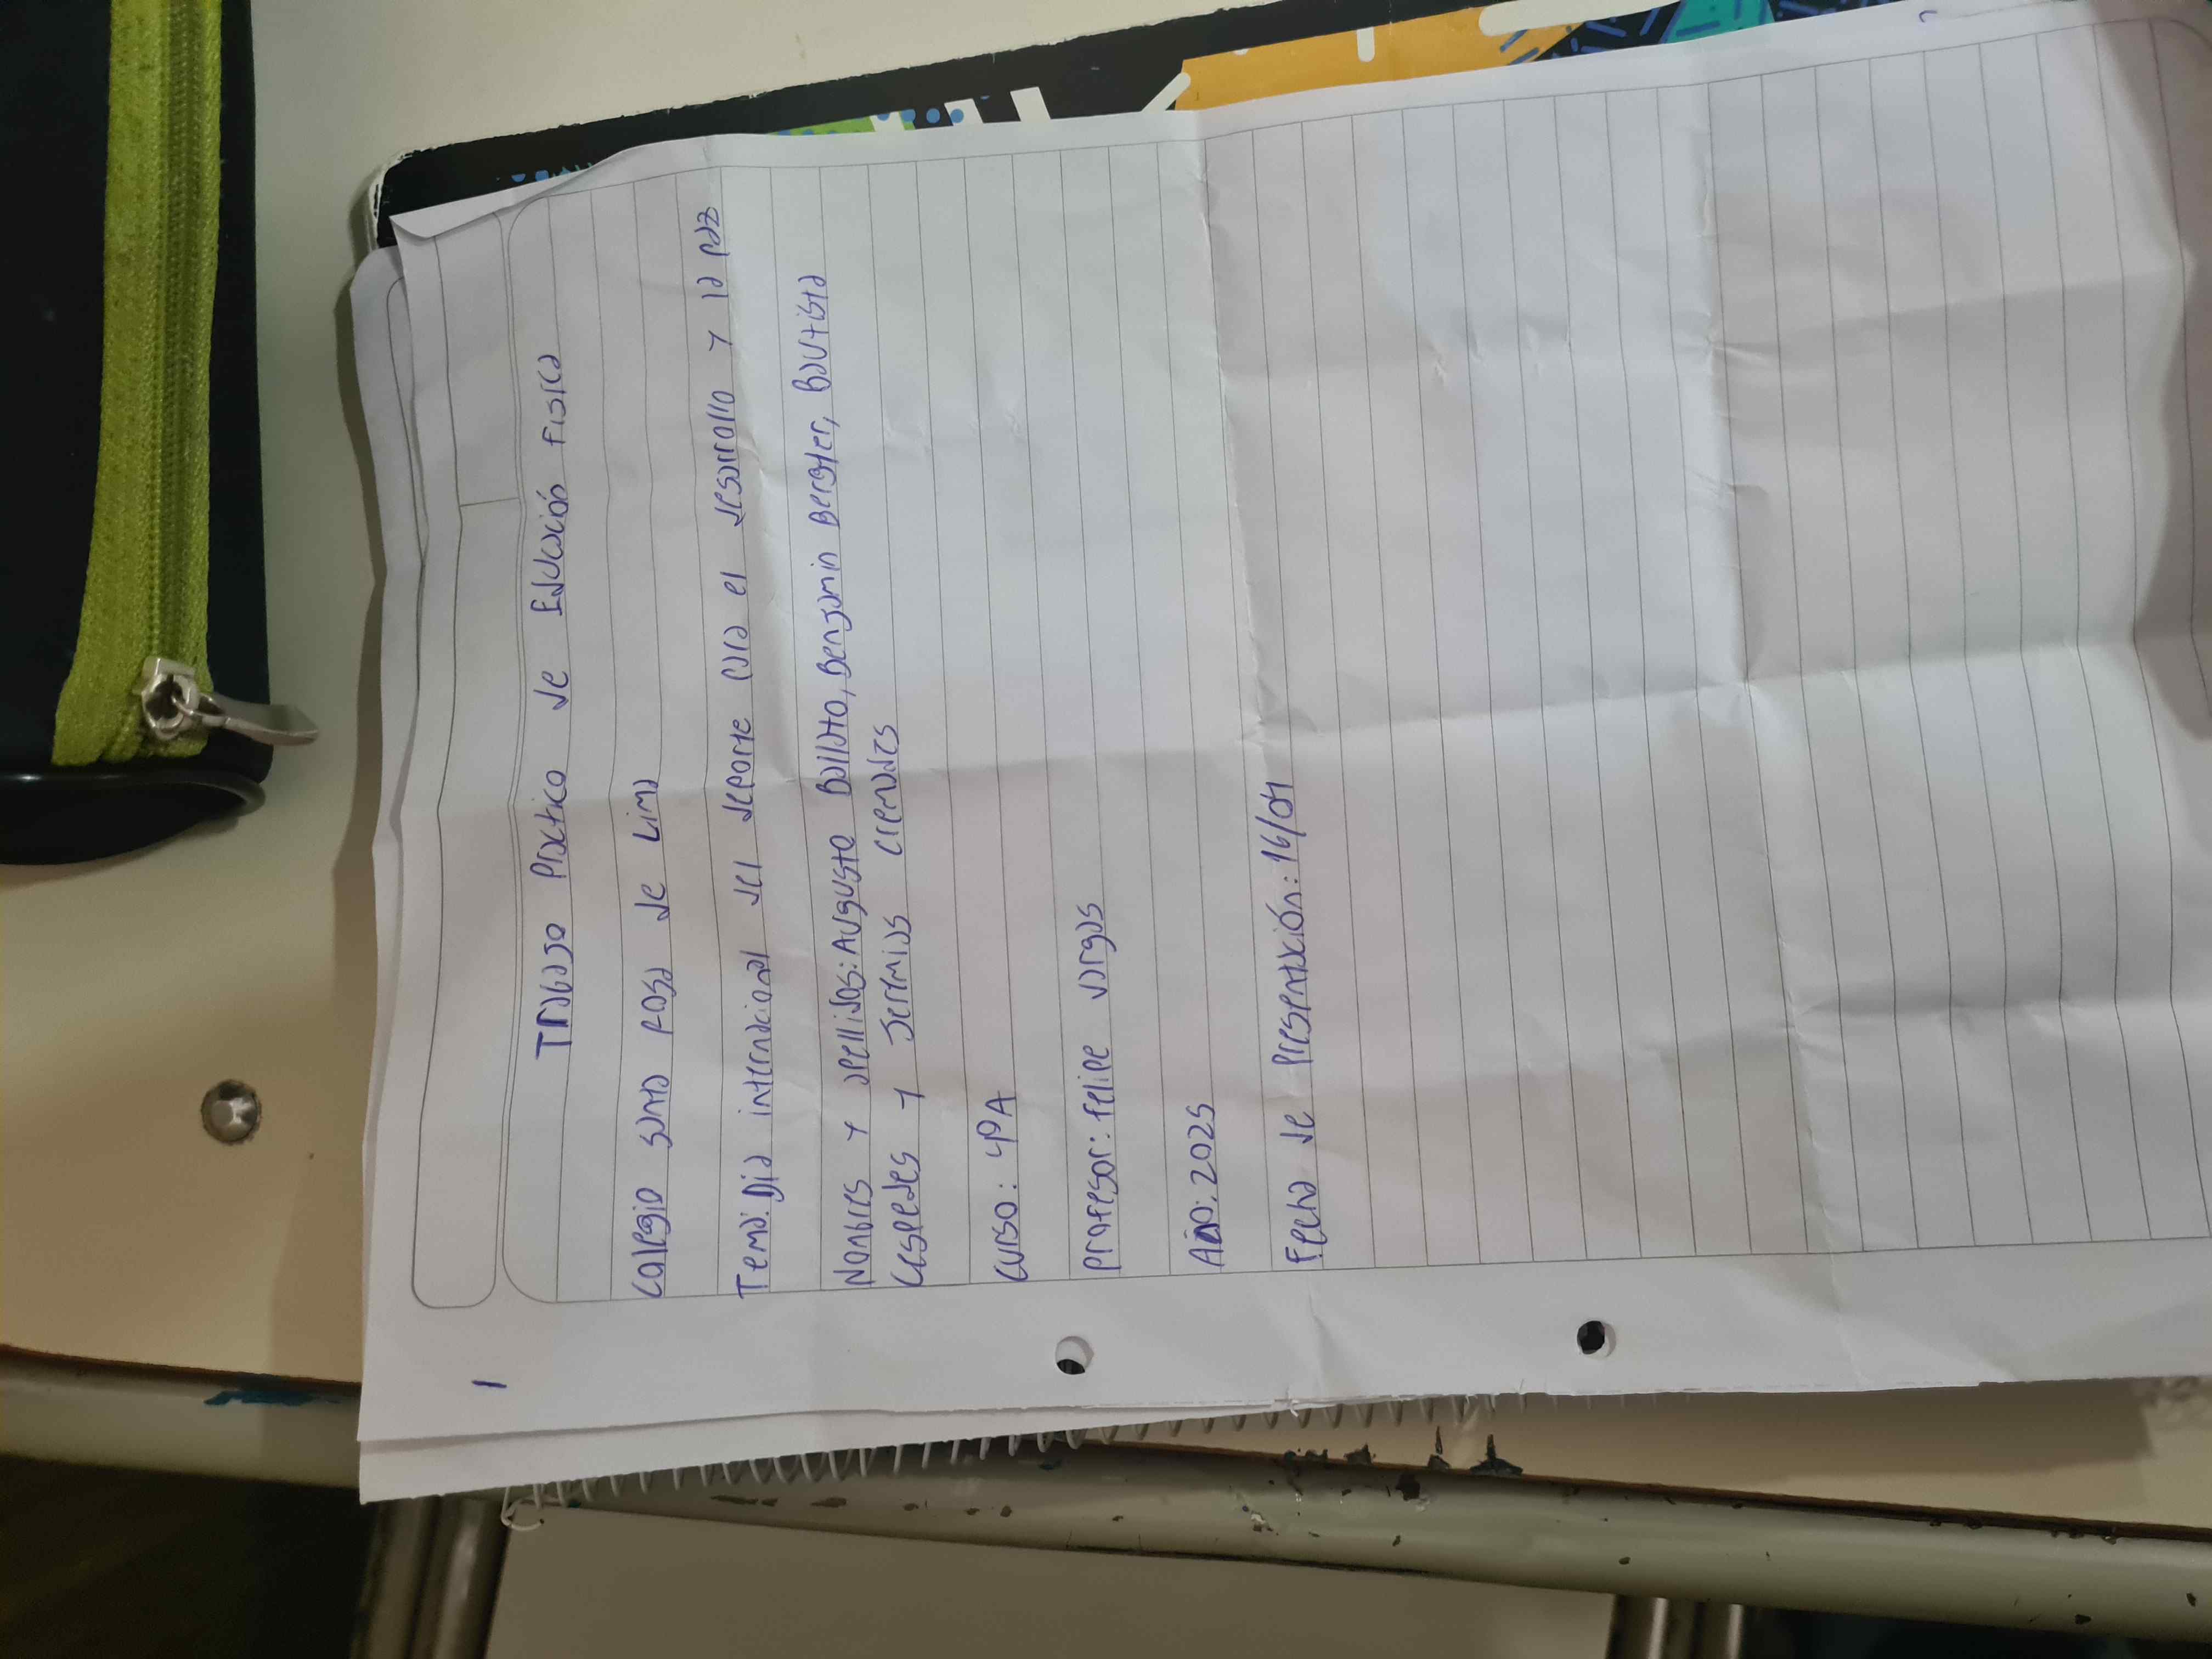 1
Trabajo Práctico de Educación Fisica
Colegio santa rosa de Lima
Tema: Dia internacional del deporte para el desarrollo y la paz
Nombres y apellidos: Augusto Ballatto, Benjamin Bergter, Bautista
Cespedes y Jeremias Cremades
Curso: 4ºA
Profesor: Felipe Vargas
Año: 2025
Fecha de Presentación: 16/04